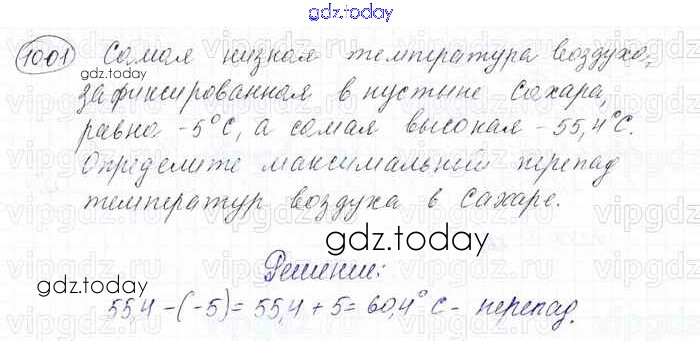 gdz.today
1001 Самая низкая температура воздуха,
gdz.today
зафиксированная в пустыне Сахара,
равна -5°С, а самая высокая - 55,4°С.
Определите максимальный перепад
температур воздуха в Сахаре.
gdz.today
Решение:
55,4-(-5)=55,4+5=60,4°С - перепад.
gdz.today